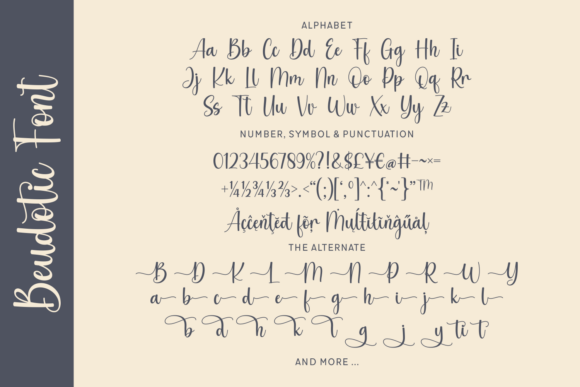 Bendotic Font
ALPHABET
Aa Bb Cc Dd Ee Ff Gg Hh Ii
Jj Kk Ll Mm Nn Oo Pp Qq Rr
Ss Tt Uu Vv Ww Xx Yy Zz
NUMBER, SYMBOL & PUNCTUATION
0123456789%?!&$£¥€@#-~×=
+¼½¾⅓⅔>.<“(,)[‘,º]^:^{‘~’}”™
Àççèņţèd fōr Mųļţíļíņĝűāļ
THE ALTERNATE
B D K L M N P R W Y
a b c d e f g h i j k l
b d h k l g j y ti t
AND MORE ...